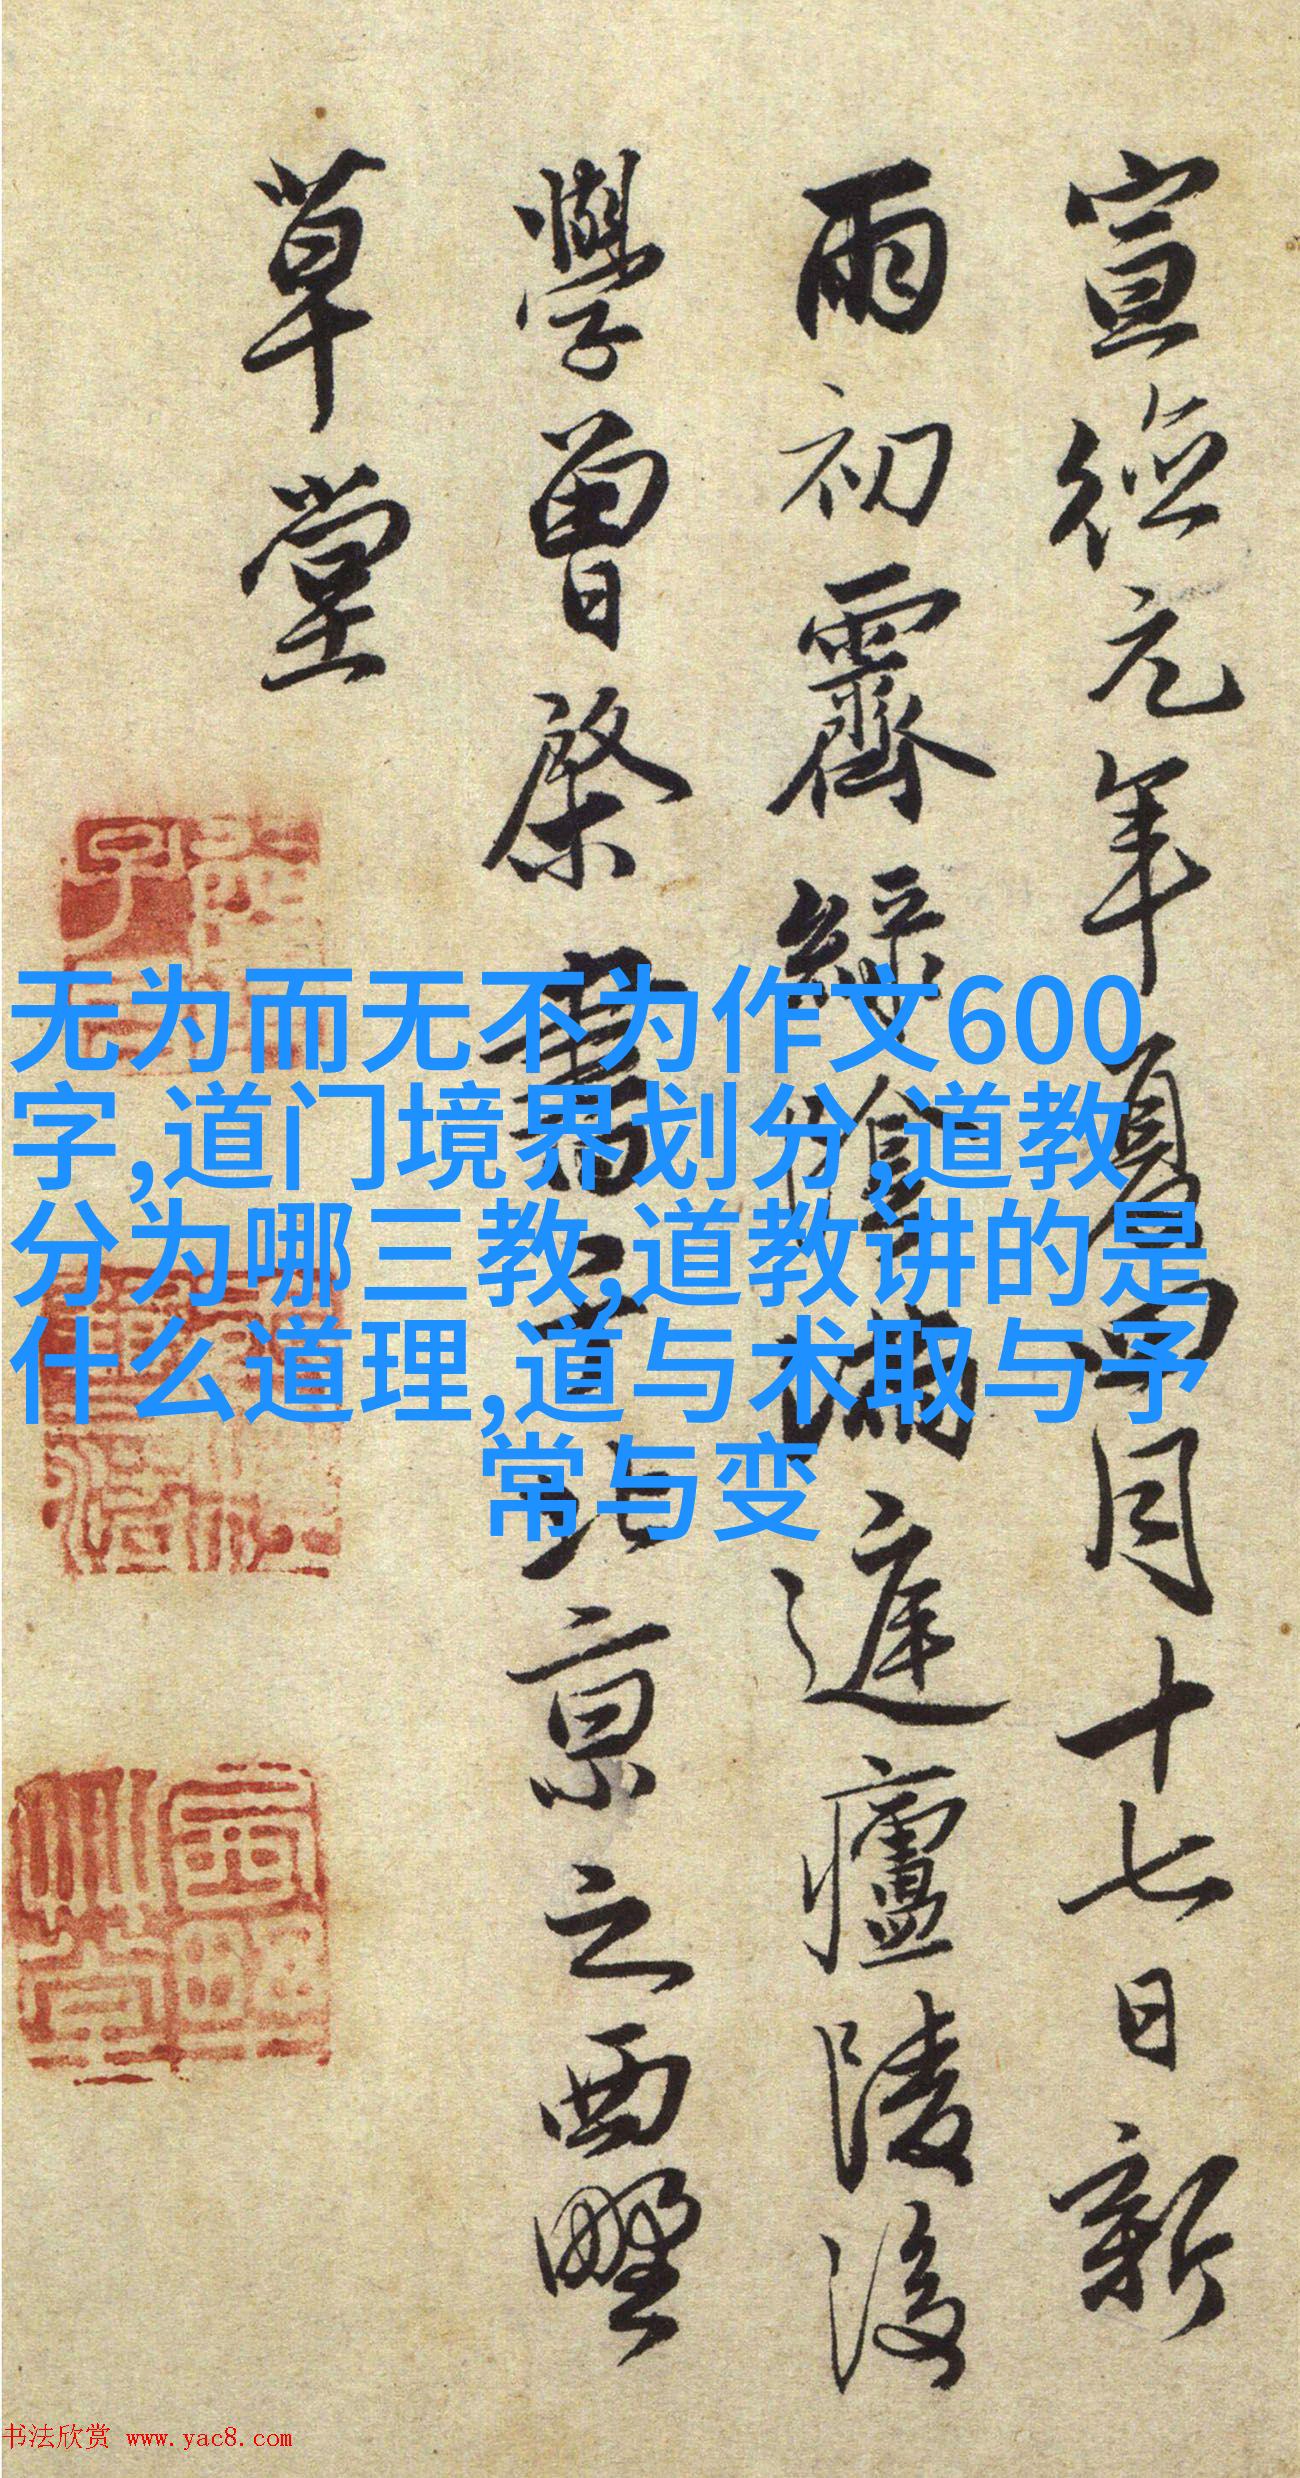 宣德元年夏四月十七日新
雨初霽綠陰滿庭廬陵後
學曾棨書于北京之西墅
草堂
无为而无不为作文600
字,道门境界划分,道教
分为哪三教,道教讲的是
什么道理,道与术取与予
常与变
书法欣赏 www.yac8.com